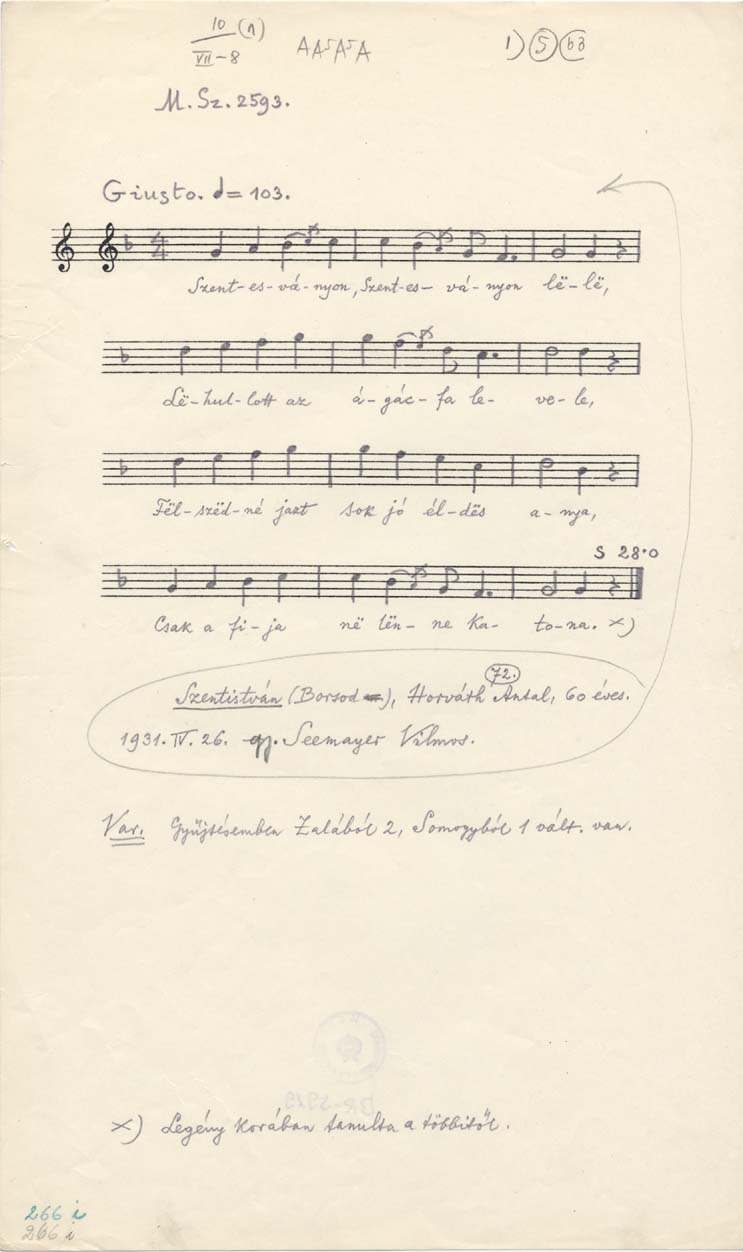 10 (n)
VII-8
AA⁵A⁵A
1) 5 b3
M. Sz. 2593.
Giusto. = 103.
4
4
Szent-es-vá-nyon, Szent-es- vá-nyon lë-lë,
Lë-hul-lott az á-gác-fa le- ve-le,
Fël-szëd-né jazt sok jó él-dës a-nya,
Csak a fi-ja në lën-ne Ka- to-na. x)
S 28·0
72.
Szentistván (Borsod), Horváth Antal, 60 éves.
1931. IV. 26. gy. Seemayer Vilmos.
Var. Gyűjtésemben Zalából 2, Somogyból 1 vált. van.
x) Legény korában tanulta a többitől.
266 i
266 i